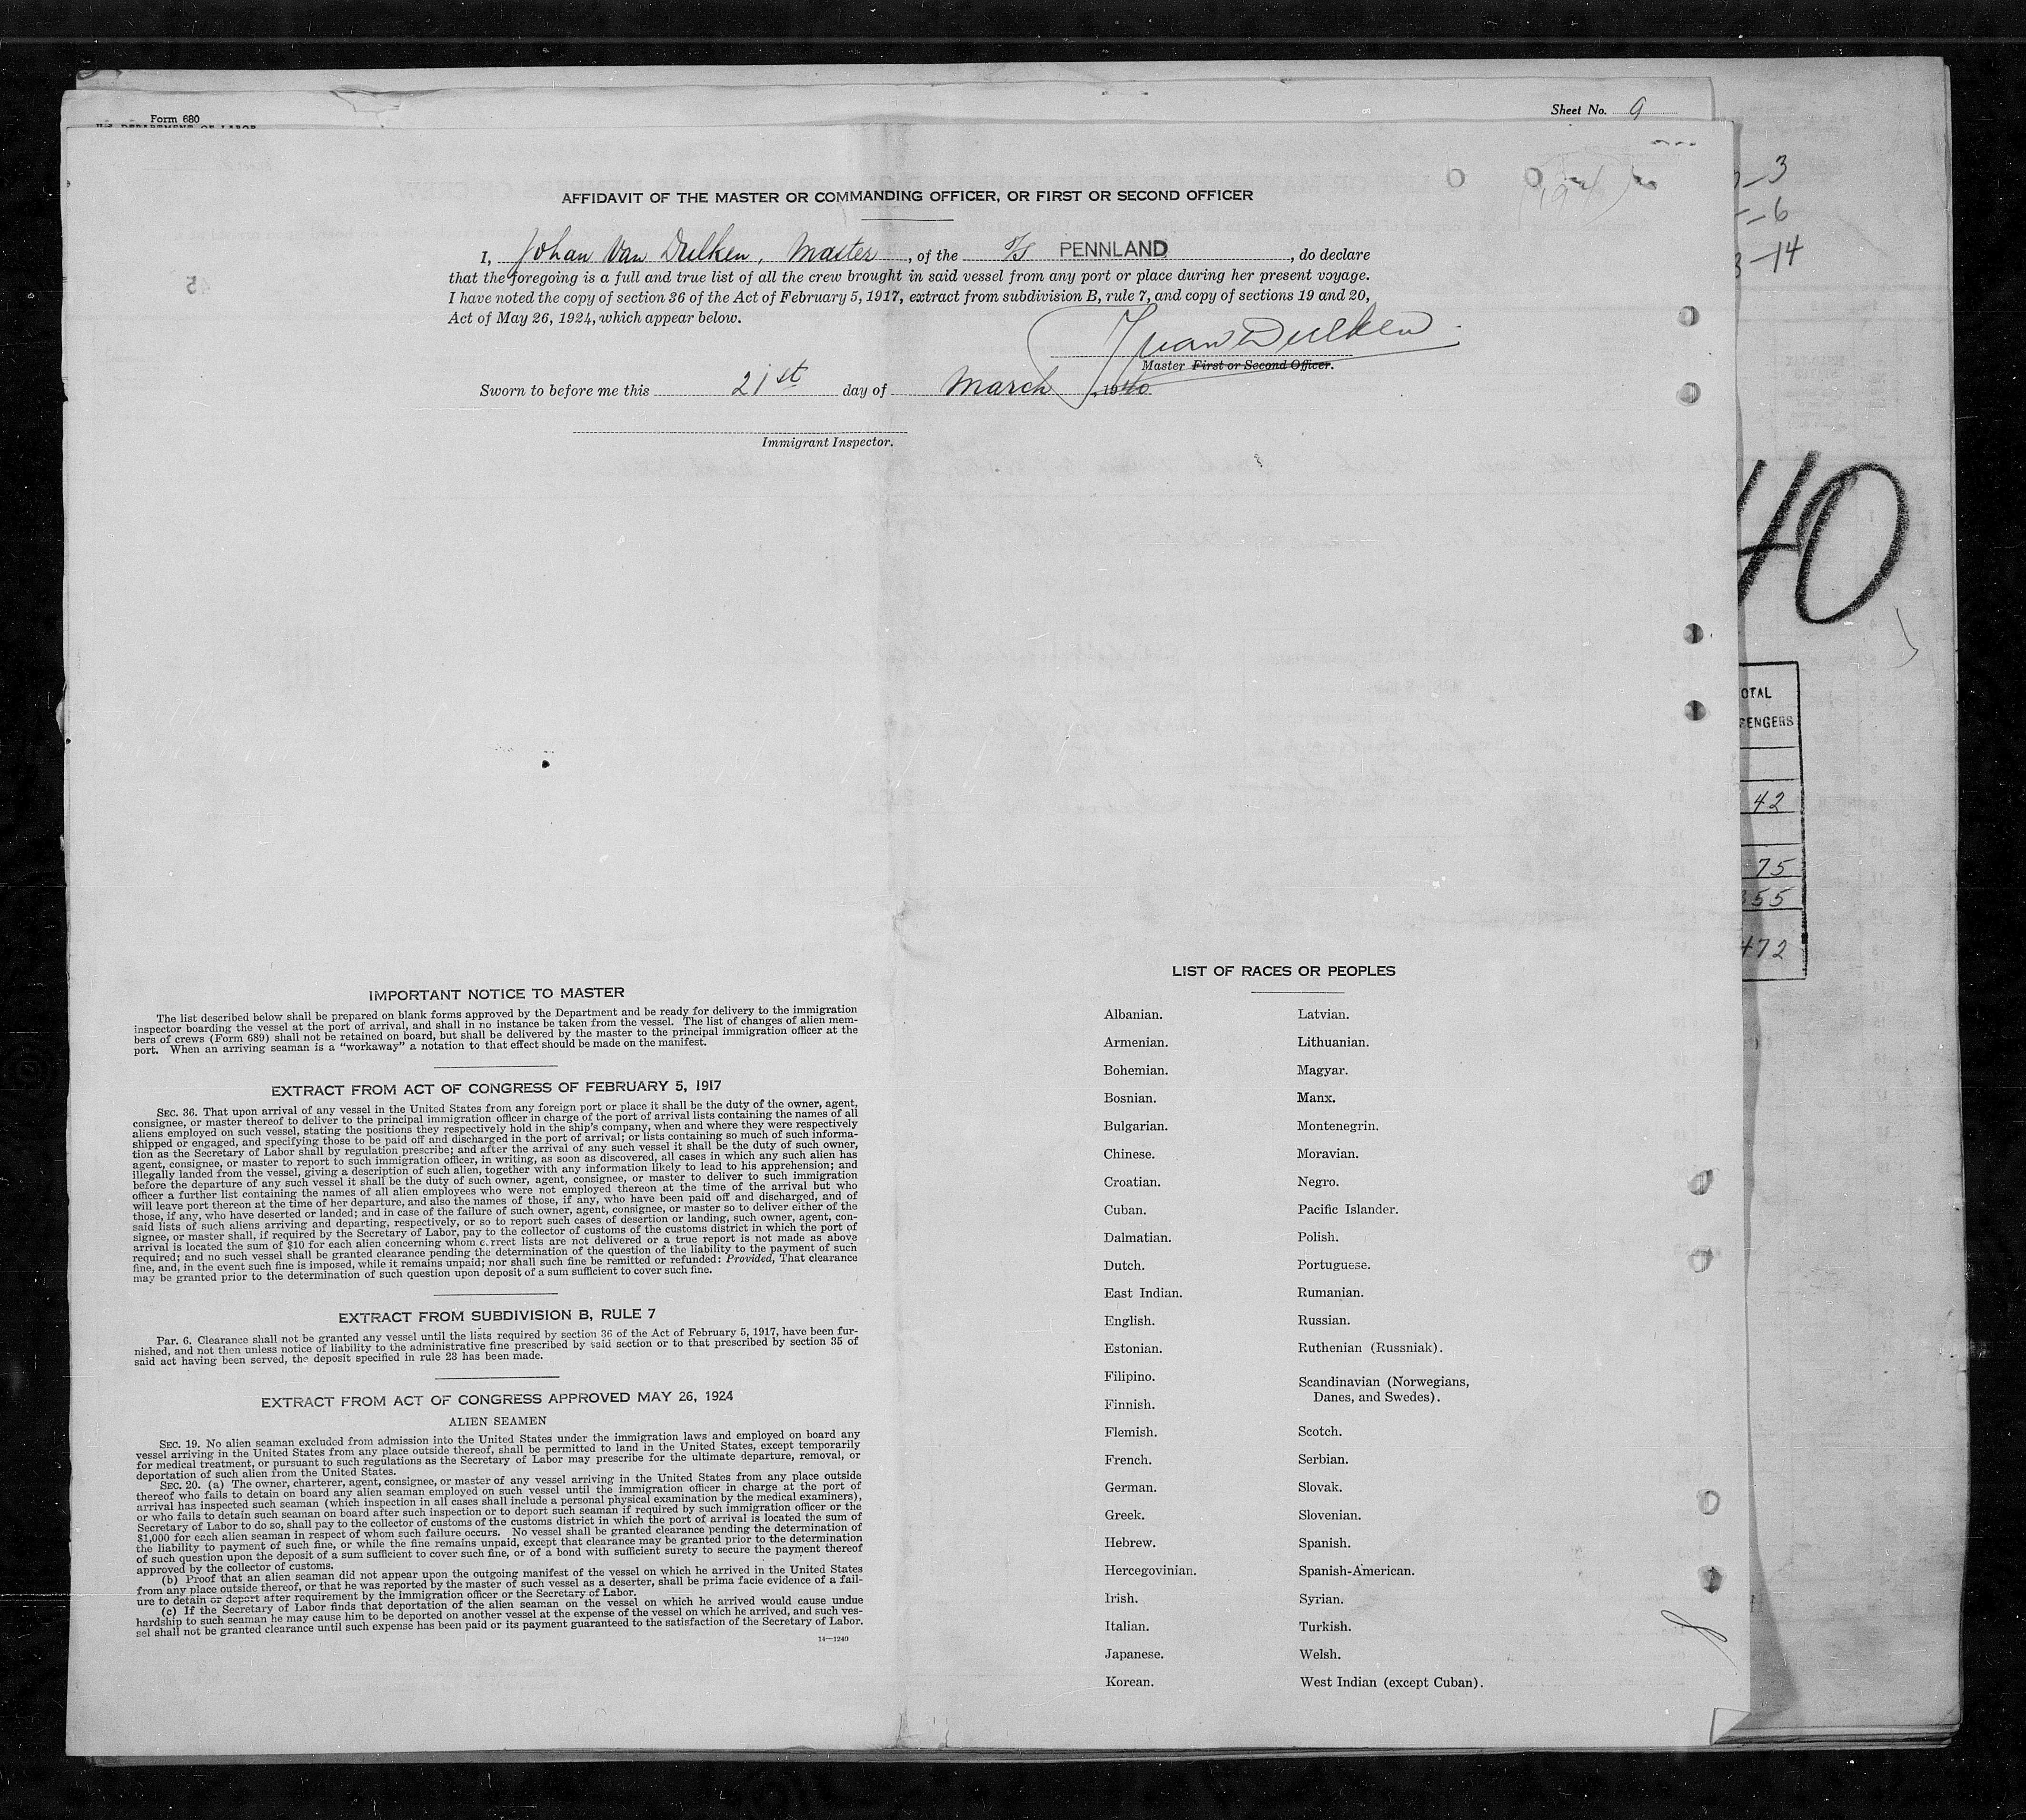 Form 680
U.S. DEPARTMENT OF LABOR
Sheet No. 9
AFFIDAVIT OF THE MASTER OR COMMANDING OFFICER, OR FIRST OR SECOND OFFICER
I, Johan Van Dulken, Master, of the S/S PENNLAND, do declare
that the foregoing is a full and true list of all the crew brought in said vessel from any port or place during her present voyage.
I have noted the copy of section 36 of the Act of February 5, 1917, extract from subdivision B, rule 7, and copy of sections 19 and 20,
Act of May 26, 1924, which appear below.
Master First or Second Officer.
Sworn to before me this 21st day of March, 1940
Immigrant Inspector.
-3
-6
3-14
40
OTAL
SENGERS
42
75
355
472
IMPORTANT NOTICE TO MASTER
The list described below shall be prepared on blank forms approved by the Department and be ready for delivery to the immigration
inspector boarding the vessel at the port of arrival, and shall in no instance be taken from the vessel. The list of changes of alien mem-
bers of crews (Form 689) shall not be retained on board, but shall be delivered by the master to the principal immigration officer at the
port. When an arriving seaman is a "workaway" a notation to that effect should be made on the manifest.
EXTRACT FROM ACT OF CONGRESS OF FEBRUARY 5, 1917
SEC. 36. That upon arrival of any vessel in the United States from any foreign port or place it shall be the duty of the owner, agent,
consignee, or master thereof to deliver to the principal immigration officer in charge of the port of arrival lists containing the names of all
aliens employed on such vessel, stating the positions they respectively hold in the ship's company, when and where they were respectively
shipped or engaged, and specifying those to be paid off and discharged in the port of arrival; or lists containing so much of such informa-
tion as the Secretary of Labor shall by regulation prescribe; and after the arrival of any such vessel it shall be the duty of such owner,
agent, consignee, or master to report to such immigration officer, in writing, as soon as discovered, all cases in which any such alien has
illegally landed from the vessel, giving a description of such alien, together with any information likely to lead to his apprehension; and
before the departure of any such vessel it shall be the duty of such owner, agent, consignee, or master to deliver to such immigration
officer a further list containing the names of all alien employees who were not employed thereon at the time of the arrival but who
will leave port thereon at the time of her departure, and also the names of those, if any, who have been paid off and discharged, and of
those, if any, who have deserted or landed; and in case of the failure of such owner, agent, consignee, or master so to deliver either of the
said lists of such aliens arriving and departing, respectively, or so to report such cases of desertion or landing, such owner, agent, con-
signee, or master shall, if required by the Secretary of Labor, pay to the collector of customs of the customs district in which the port of
arrival is located the sum of $10 for each alien concerning whom correct lists are not delivered or a true report is not made as above
required; and no such vessel shall be granted clearance pending the determination of the question of the liability to the payment of such
fine, and, in the event such fine is imposed, while it remains unpaid; nor shall such fine be remitted or refunded: Provided, That clearance
may be granted prior to the determination of such question upon deposit of a sum sufficient to cover such fine.
EXTRACT FROM SUBDIVISION B, RULE 7
Par. 6. Clearance shall not be granted any vessel until the lists required by section 36 of the Act of February 5, 1917, have been fur-
nished, and not then unless notice of liability to the administrative fine prescribed by said section or to that prescribed by section 35 of
said act having been served, the deposit specified in rule 23 has been made.
EXTRACT FROM ACT OF CONGRESS APPROVED MAY 26, 1924
ALIEN SEAMEN
SEC. 19. No alien seaman excluded from admission into the United States under the immigration laws and employed on board any
vessel arriving in the United States from any place outside thereof, shall be permitted to land in the United States, except temporarily
for medical treatment, or pursuant to such regulations as the Secretary of Labor may prescribe for the ultimate departure, removal, or
deportation of such alien from the United States.
SEC. 20. (a) The owner, charterer, agent, consignee, or master of any vessel arriving in the United States from any place outside
thereof who fails to detain on board any alien seaman employed on such vessel until the immigration officer in charge at the port of
arrival has inspected such seaman (which inspection in all cases shall include a personal physical examination by the medical examiners),
or who fails to detain such seaman on board after such inspection or to deport such seaman if required by such immigration officer or the
Secretary of Labor to do so, shall pay to the collector of customs of the customs district in which the port of arrival is located the sum of
$1,000 for each alien seaman in respect of whom such failure occurs. No vessel shall be granted clearance pending the determination of
the liability to payment of such fine, or while the fine remains unpaid, except that clearance may be granted prior to the determination
of such question upon the deposit of a sum sufficient to cover such fine, or of a bond with sufficient surety to secure the payment thereof
approved by the collector of customs.
(b) Proof that an alien seaman did not appear upon the outgoing manifest of the vessel on which he arrived in the United States
from any place outside thereof, or that he was reported by the master of such vessel as a deserter, shall be prima facie evidence of a fail-
ure to detain or deport after requirement by the immigration officer or the Secretary of Labor.
(c) If the Secretary of Labor finds that deportation of the alien seaman on the vessel on which he arrived would cause undue
hardship to such seaman he may cause him to be deported on another vessel at the expense of the vessel on which he arrived, and such ves-
sel shall not be granted clearance until such expense has been paid or its payment guaranteed to the satisfaction of the Secretary of Labor.
14—1240
LIST OF RACES OR PEOPLES
Albanian.
Armenian.
Bohemian.
Bosnian.
Bulgarian.
Chinese.
Croatian.
Cuban.
Dalmatian.
Dutch.
East Indian.
English.
Estonian.
Filipino.
Finnish.
Flemish.
French.
German.
Greek.
Hebrew.
Hercegovinian.
Irish.
Italian.
Japanese.
Korean.
Latvian.
Lithuanian.
Magyar.
Manx.
Montenegrin.
Moravian.
Negro.
Pacific Islander.
Polish.
Portuguese.
Rumanian.
Russian.
Ruthenian (Russniak).
Scandinavian (Norwegians,
Danes, and Swedes).
Scotch.
Serbian.
Slovak.
Slovenian.
Spanish.
Spanish-American.
Syrian.
Turkish.
Welsh.
West Indian (except Cuban).